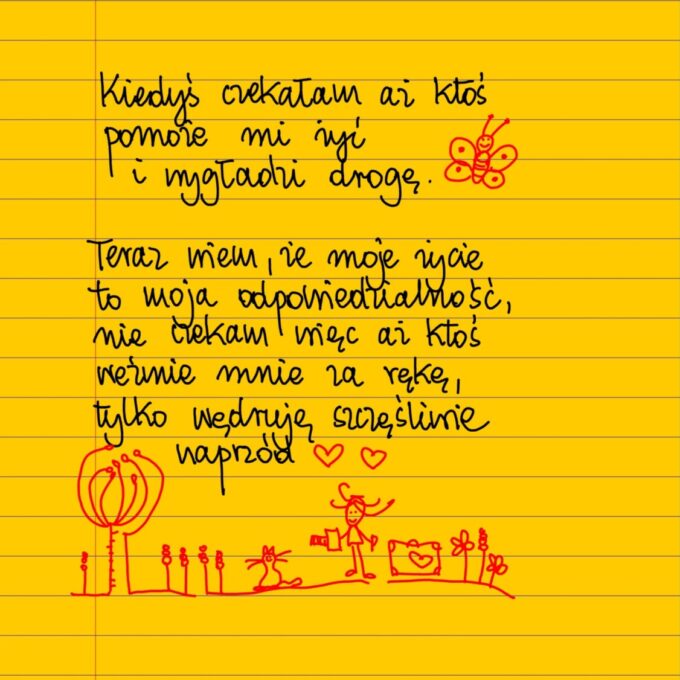 Kiedyś czekałam aż ktoś
pomoże mi żyć
i wygładzi drogę.
Teraz wiem, że moje życie
to moja odpowiedzialność,
nie czekam więc aż ktoś
weźmie mnie za rękę,
tylko wędruję szczęśliwie
naprzód